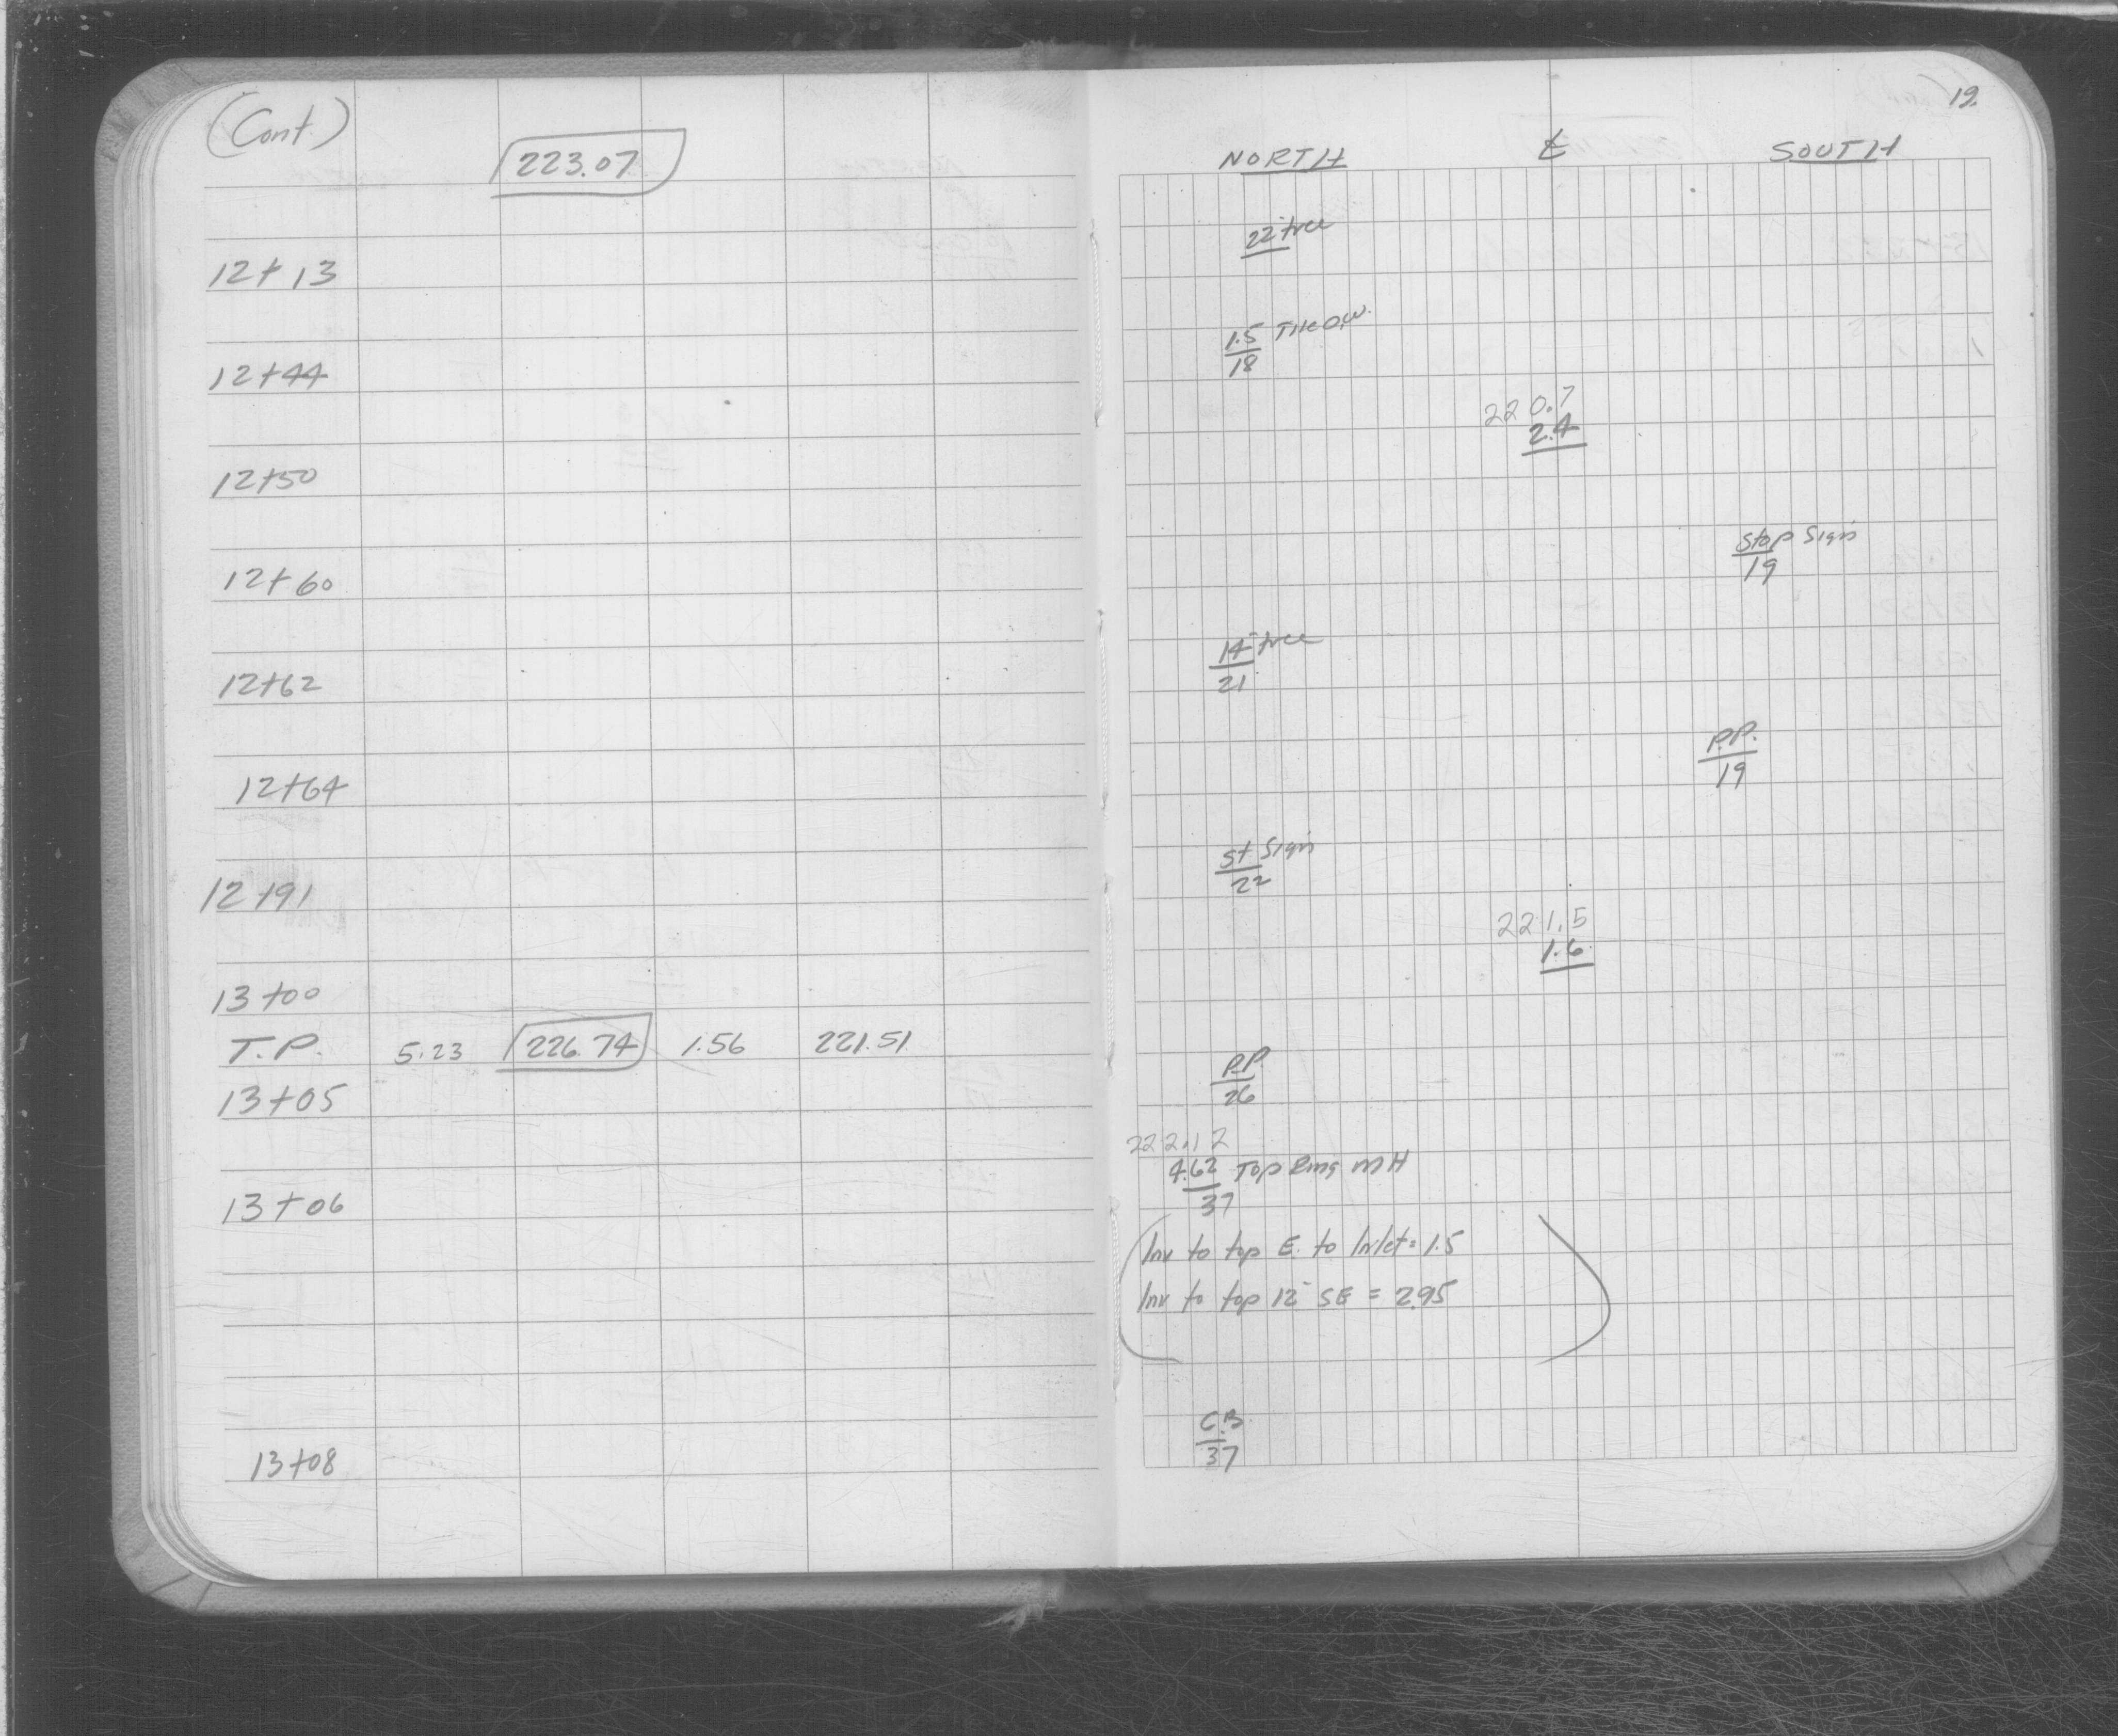 (Cont.)
223.07
12+13
12+44
12+50
12+60
12+62
12+64
12+91
13+00
T.P. 5.23 226.74 1.56 221.51
13+05
13+06
13+08
19.
NORTH ℄ SOUTH
22" tree
1.5
18
220.7
2.4
Stop Sign
19
14" tree
21
P.P.
19
St Sign
22
221.5
1.6
P.P.
26
222.12
4.62 Top Ring MH
37
Inv to top E. to Inlet = 1.5
Inv to top 12" SE = 2.95
C.B
37